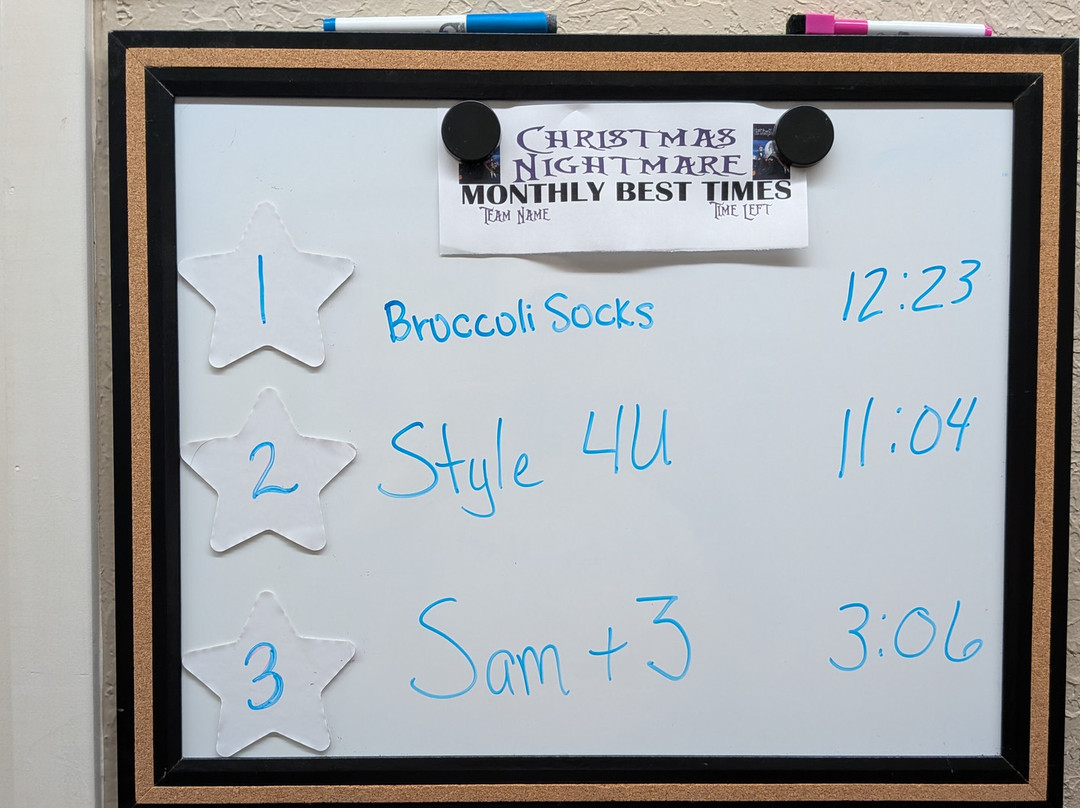 CHRISTMAS
NIGHTMARE
MONTHLY BEST TIMES
TEAM NAME TIME LEFT
1 Broccoli Socks 12:23
2 Style 4U 11:04
3 Sam + 3 3:06